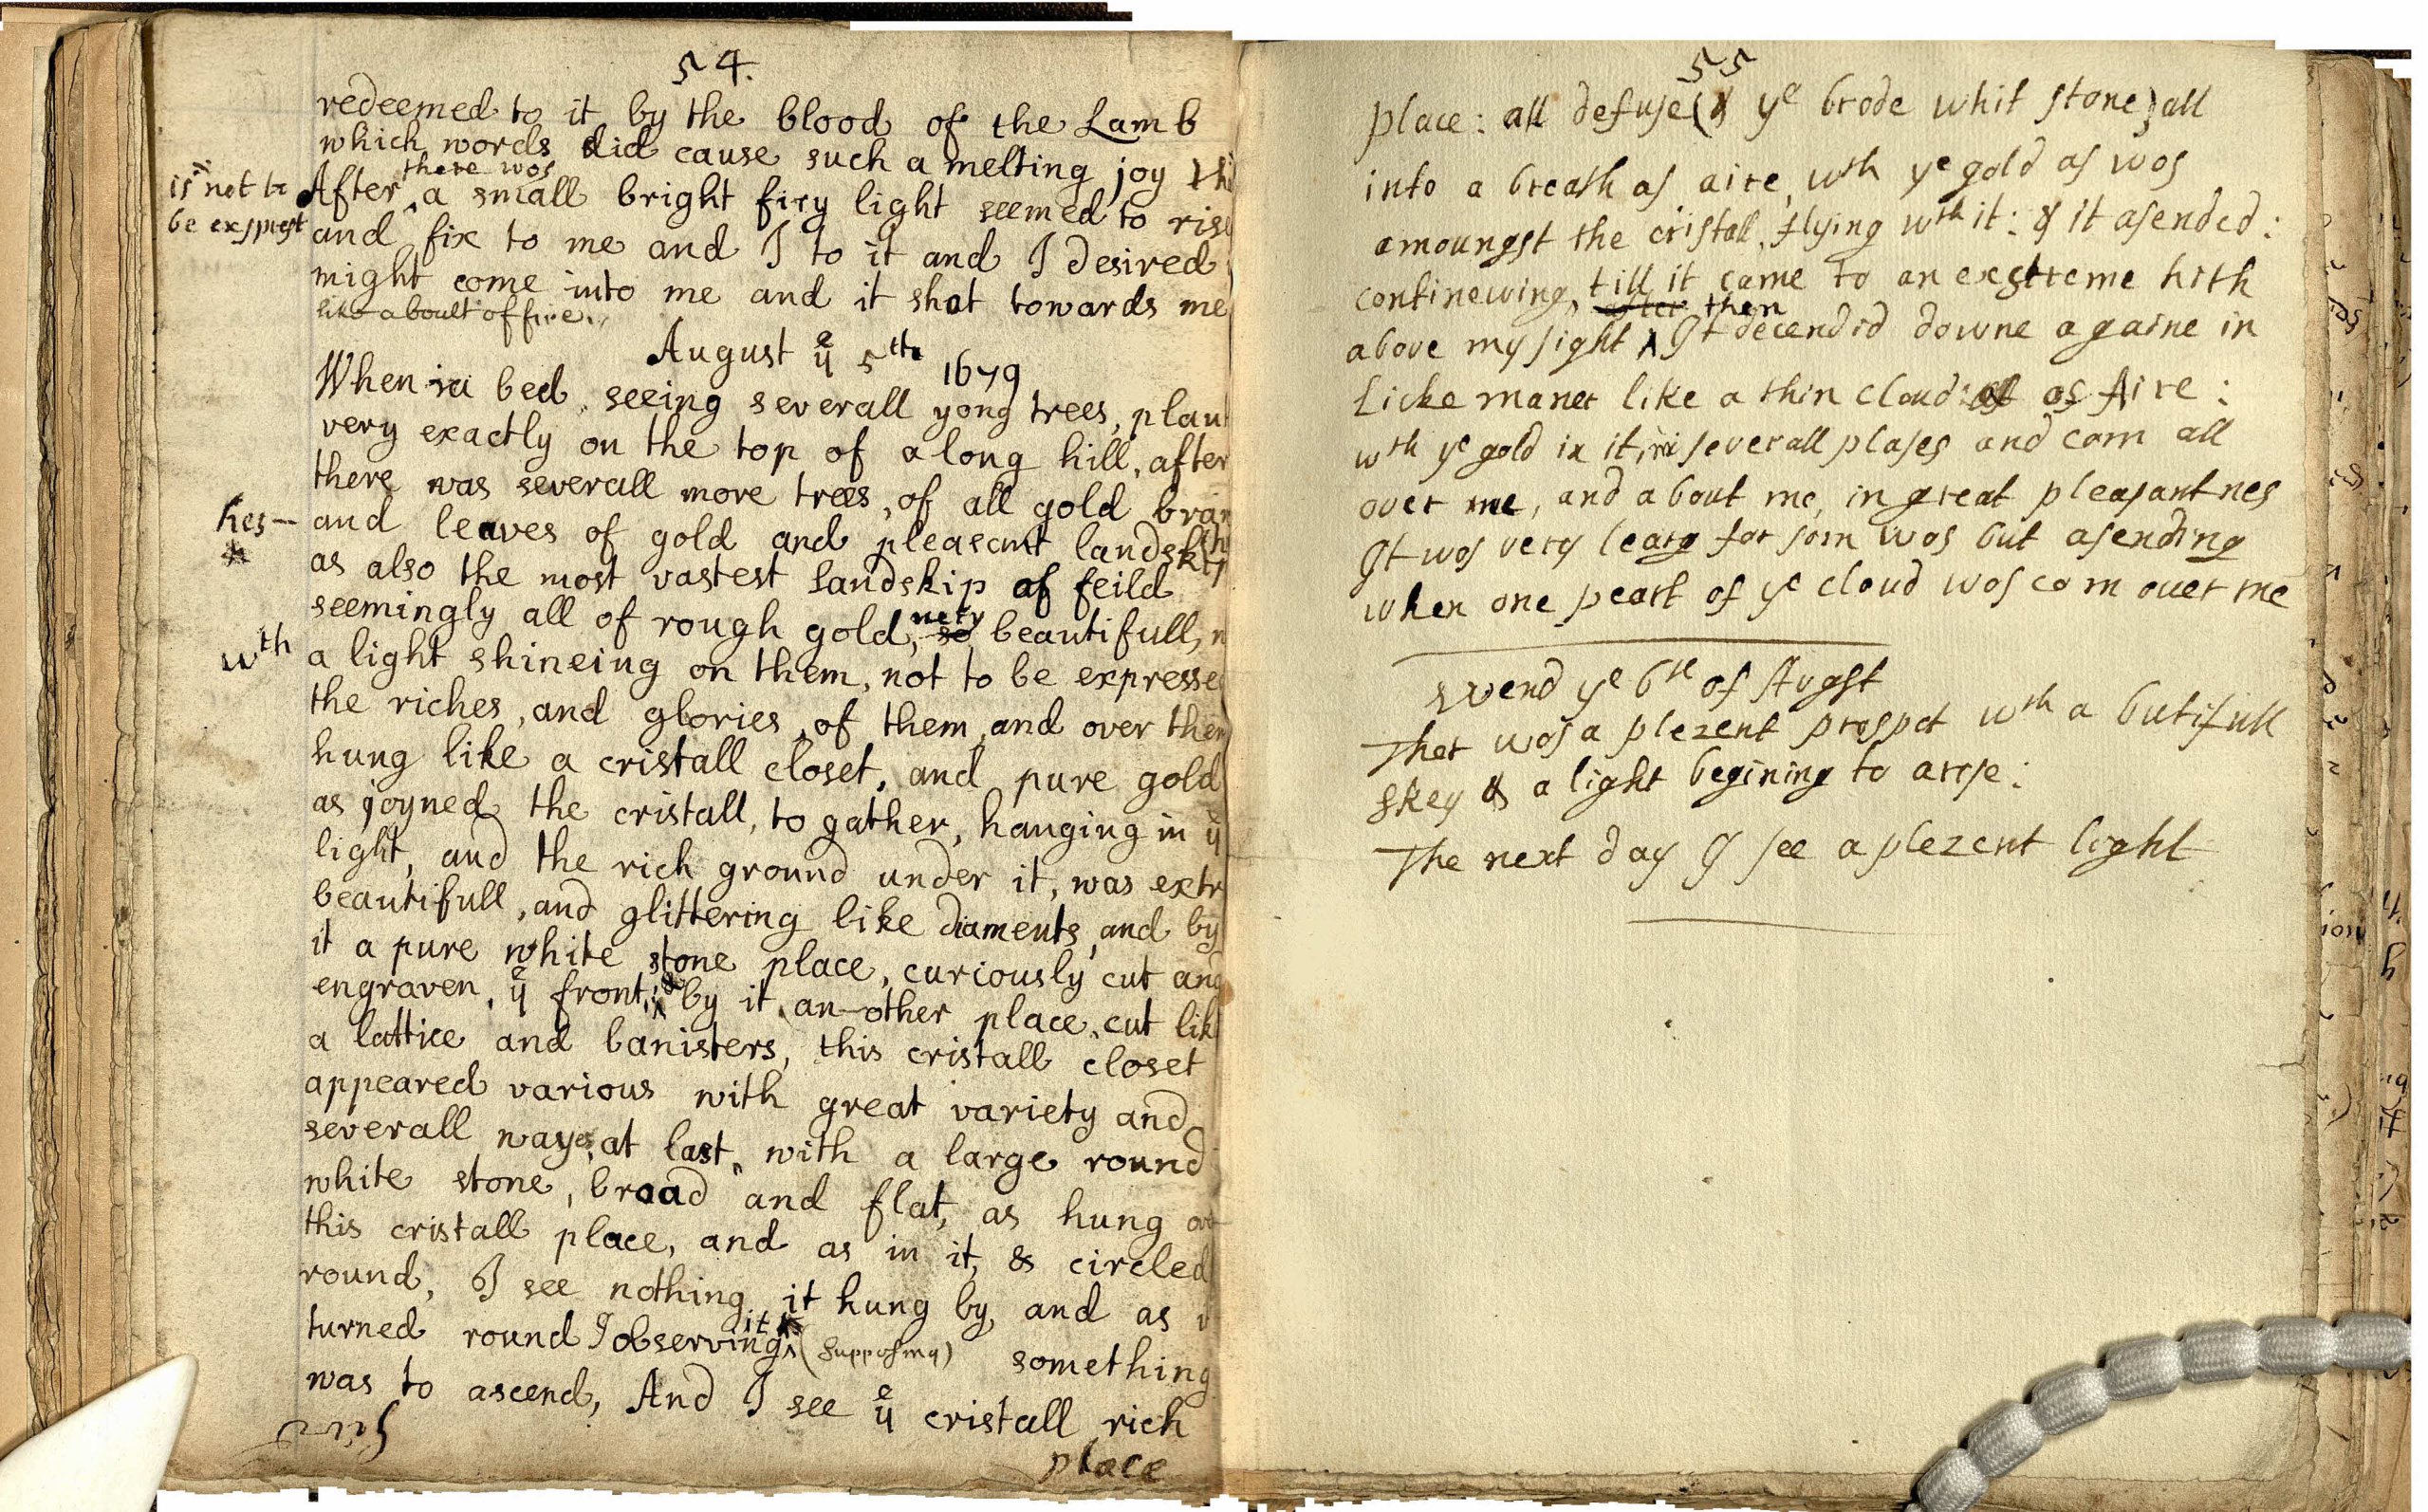 54.
redeemed to it by the blood of the Lamb
which words did cause such a melting joy
is not to
be exsprest
there wos
After a small bright firy light seemed to rise
and fix to me and I to it and I desired
might come into me and it shot towards me
like a boult of fire.
August ye 5th 1679
When in bed, seeing severall yong trees, plant
very exactly on the top of a long hill, after
there was severall more trees, of all gold bran
hes-
and leaves of gold and pleasant landskip
as also the most vastest landskip of feild
seemingly all of rough gold, very so beautifull,
wth
a light shineing on them, not to be expresse
the riches, and glories, of them, and over them
hung like a cristall closet, and pure gold
as joyned the cristall, to gather, hanging in ye
light, and the rich ground under it, was extr
beautifull, and glittering like diaments, and by
it a pure white stone place, curiously cut and
engraven, ye front, & by it, an-other place, cut lik
a lattice and banisters, this cristall closet
appeared various with great variety and
severall ways, at last, with a large round
white stone, broad and flat, as hung
this cristall place, and as in it, & circled
round, I see nothing it hung by, and as
turned round I observing it (supposing) something
was to ascend, And I see ye cristall rich
place
55
place: all defuse (& ye brode whit stone) all
into a breath as aire, wth ye gold as wos
amoungst the cristall, flying wth it: & it asended:
continewing, till it came to an exstreme hith
above my sight after then It decendid downe againe in
Licke maner like a thin cloud: as Aire:
wth ye gold in it, in severall plases and com all
over me, and about me, in great pleasantnes
It wos very learg for som wos but asending
when one peart of ye cloud wos com over me
wend ye 6th of Augst
Ther wos a plezent prospct wth a butifull
skey & a light begining to arise:
The next day I see a plezent light